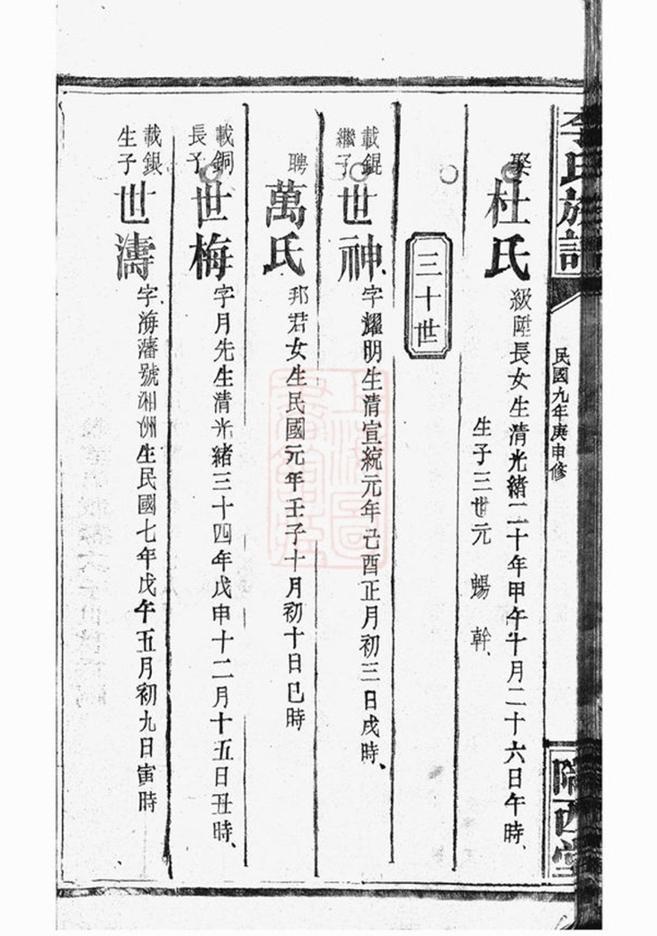 李氏族譜
民國九年庚申修
隴西堂
娶杜氏 級陞長女生清光緒二十年甲午十月二十六日午時
生子三世元 暘 幹
三十世
載錕繼子世神 字耀明生清宣統元年己酉正月初三日戌時
聘萬氏 邦君女生民國元年壬子十月初十日巳時
載銅長子世梅 字月先生清光緒三十四年戊申十二月十五日丑時
載銀生子世濤 字海藩號湘洲生民國七年戊午五月初九日寅時